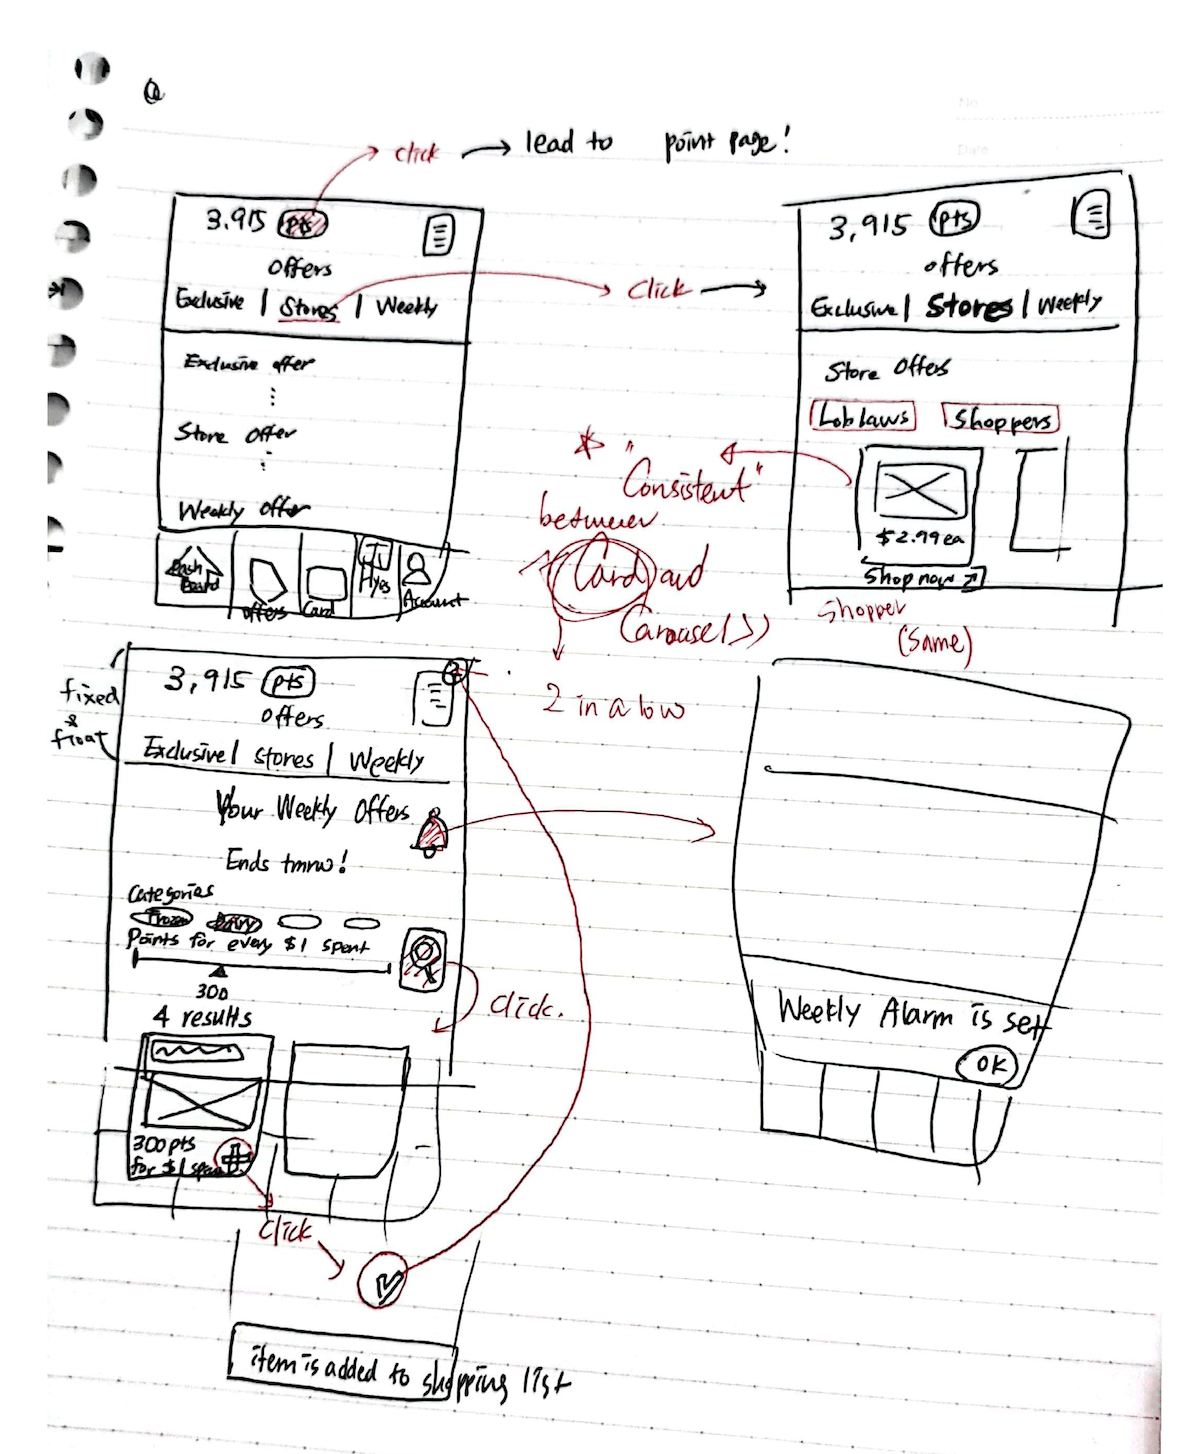 No
Date
click → lead to point page!
3,915 pts
offers
Exclusive | Stores | Weekly
Exclusive offer
Store offer
Weekly offer
Dash Board
offers
Card
Flyes
Account
click →
3,915 pts
offers
Exclusive | Stores | Weekly
Store Offers
Loblaws Shoppers
$2.99 ea
Shop now
Shopper
(same)
* "Consistent"
between
Card and
Carousel>>
2 in a low
fixed
&
float
3,915 pts
offers
2
Exclusive | stores | Weekly
Your Weekly Offers
Ends tmrw!
Categories
Frozen Dairy
Points for every $1 spent
300
click.
4 results
300pts
for $1 spent
click
item is added to shopping list
Weekly Alarm is set
OK